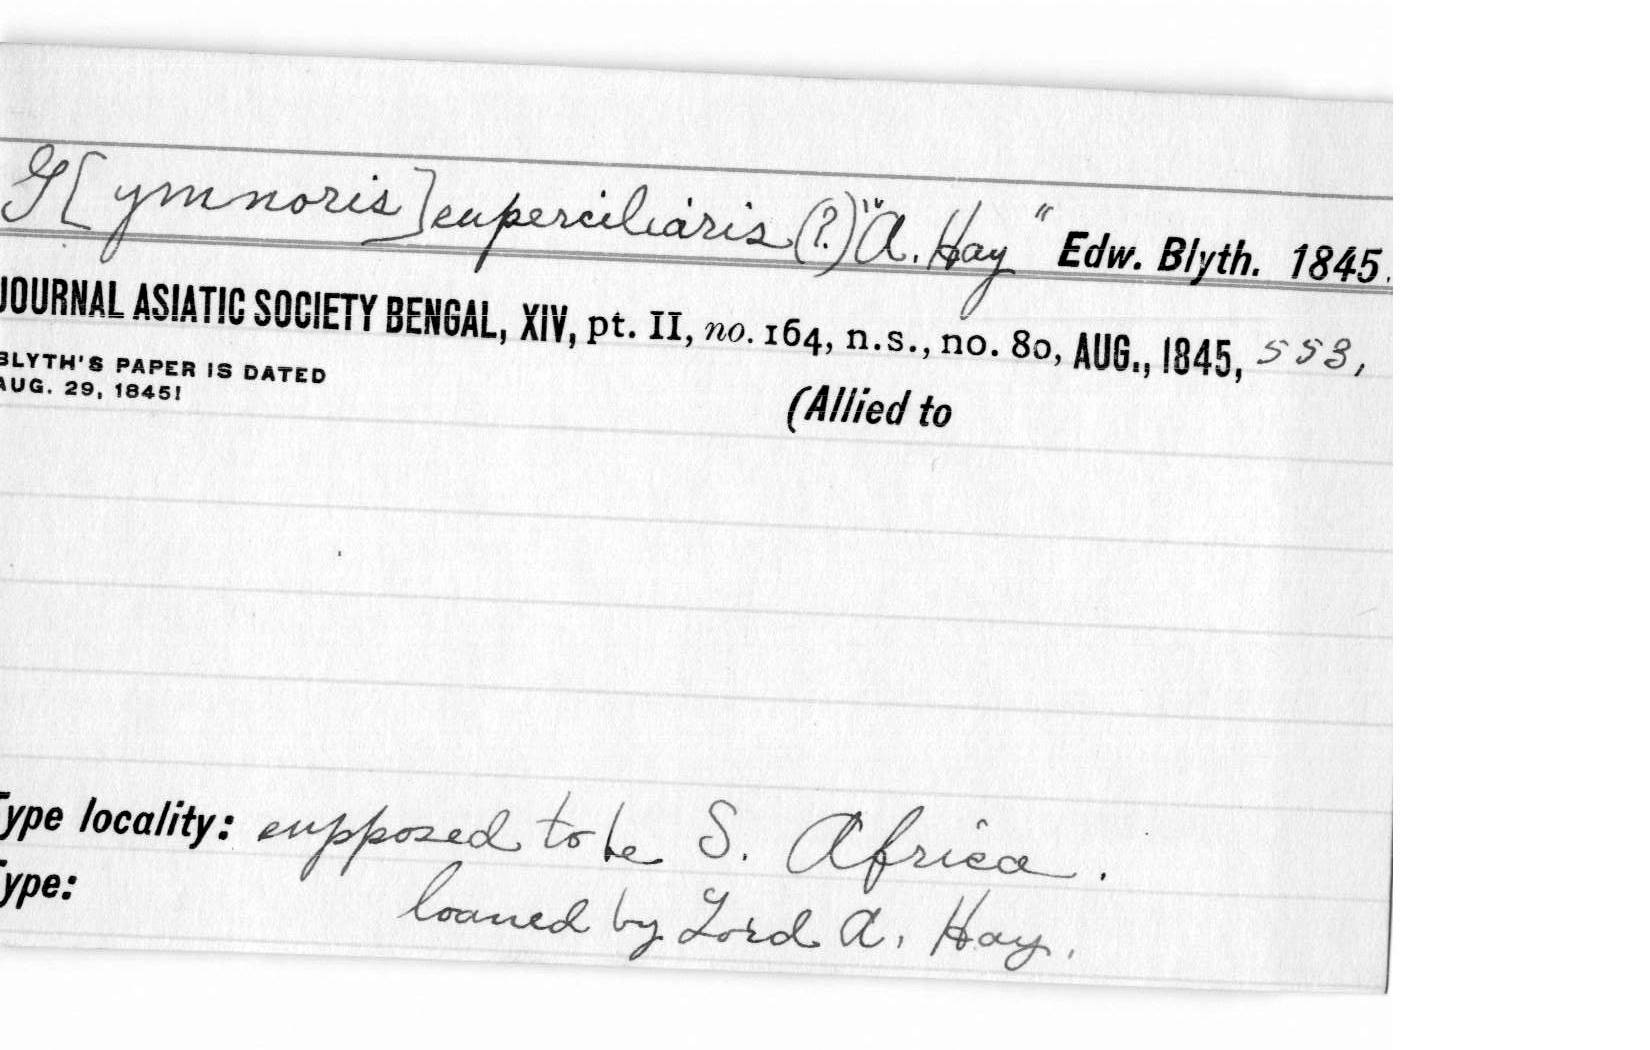 G[ymnoris] superciliaris (?) "A. Hay" Edw. Blyth. 1845.
JOURNAL ASIATIC SOCIETY BENGAL, XIV, pt. II, no. 164, n.s., no. 80, AUG., 1845, 553,
BLYTH'S PAPER IS DATED
AUG. 29, 1845!
(Allied to
Type locality: supposed to be S. Africa.
Type: loaned by Lord A. Hay.